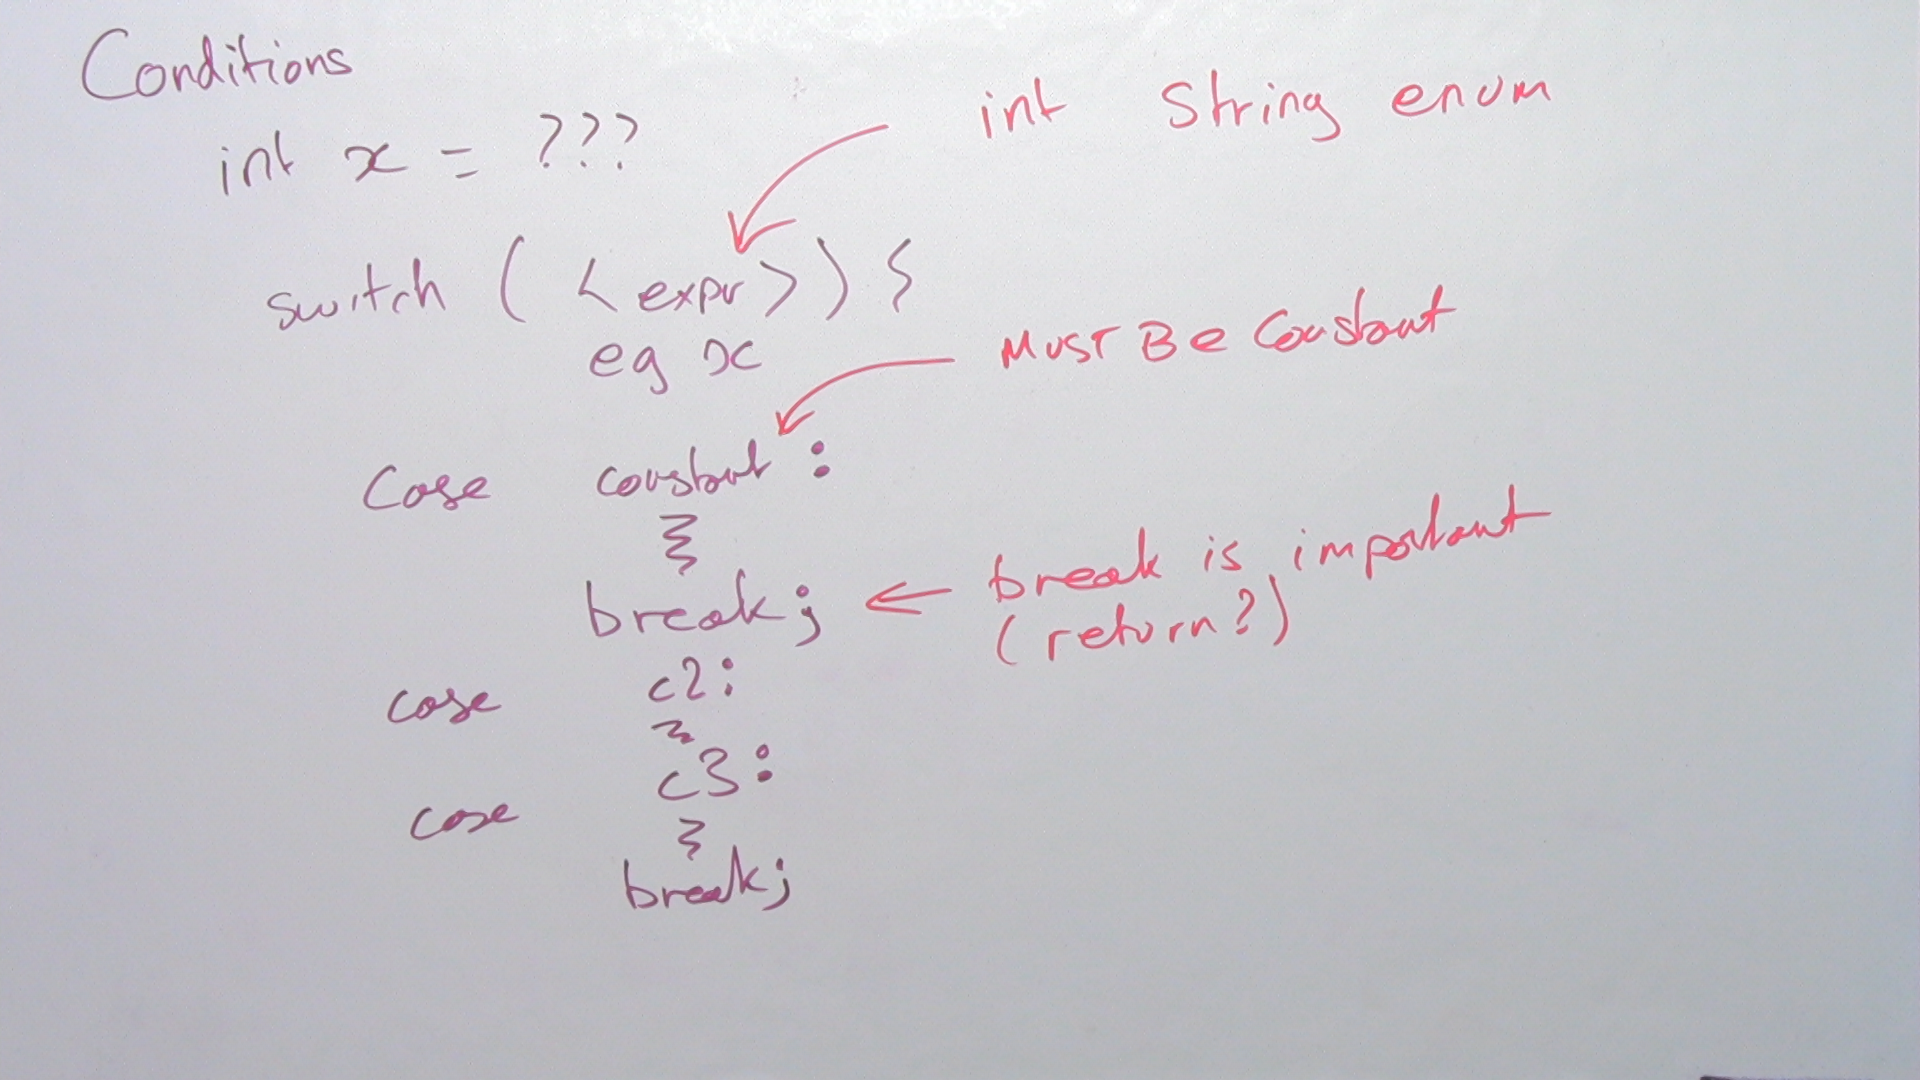 Conditions
int x = ???
int String enum
switch ( < expr > ) {
eg x
MUST BE Constant
Case constant :
break; ← break is important
(return?)
case c2:
case c3:
break;